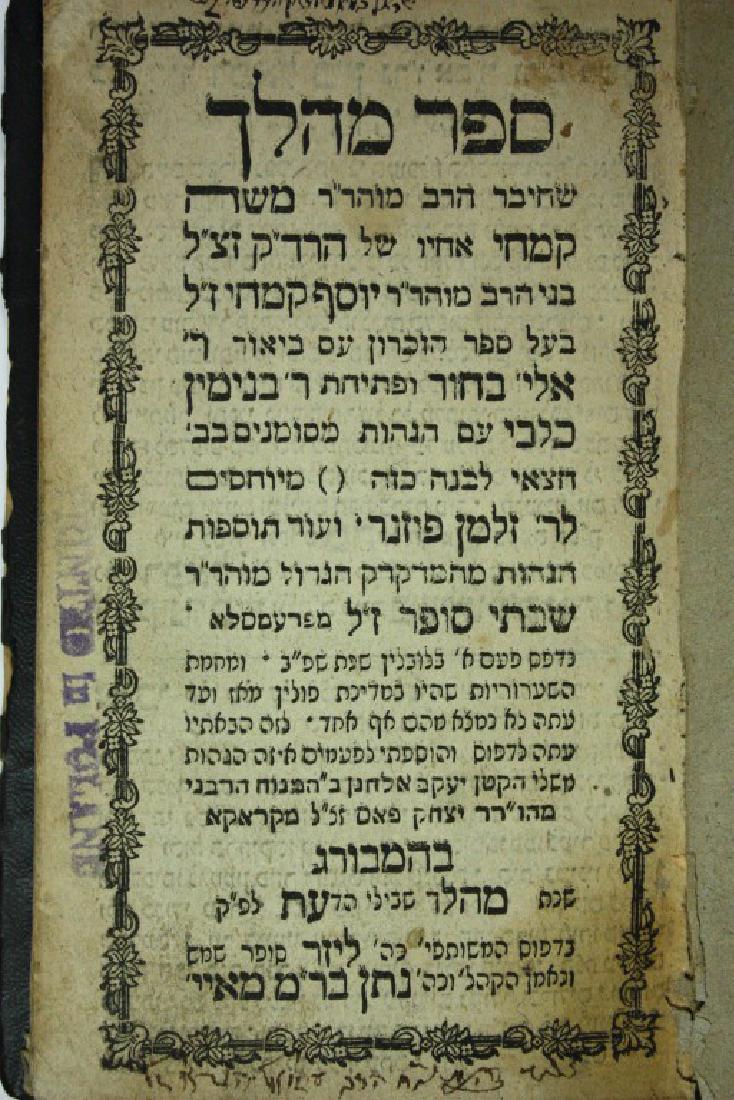 ספר מהלך
שחיבר הרב מוהר״ר משה
קמחי אחיו של הרד״ק זצ״ל
בני הרב מוהר״ר יוסף קמחי ז״ל
בעל ספר הזכרון עם ביאור ר׳
אלי׳ בחור ופתיחת ר׳ בנימין
כלבי עם הגהות מסומנים בב׳
חצאי לבנה כזה ( ) מיוחסים
לר׳ זלמן פוזנר׳ ועוד תוספות
הגהות מהמדקדק הגדול מוהר״ר
שבתי סופר ז״ל מפרעמסלא ·
נדפס פעם א׳ בלובלין שנת שפ״ב · ומחמת
השערוריות שהיו במדינת פולין מאז ועד
עתה לא נמצא מהם אף אחד · לזה הבאתיו
עתה לדפוס והוספתי לפעמים איזה הגהות
משלי הקטן יעקב אלחנן ב״המנוח הרבני
מהו״רר יצחק פאס זצ״ל מקראקא
בהמבורג
שנת מהלך שבילי הדעת לפ״ק
בדפוס המשותפי׳ כה׳ ליזר סופר שמש
ונאמן הקהל׳ וכה׳ נתן בר״מ מאיי׳
in POLAND